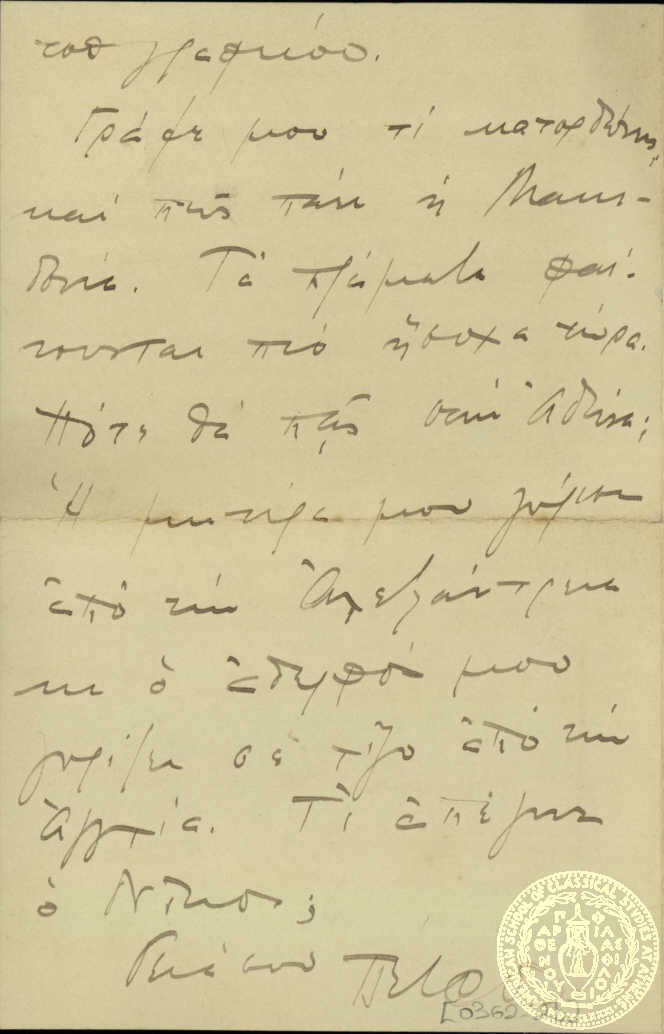 τοῦ γραφείου.
Γράψε μου τί κατορθώνεις,
καί πῶς πάει ἡ Μακε-
δονία. Τά πράματα φαί-
νουνται πιό ἥσυχα τώρα.
Πότε θά πᾷς στήν Ἀθήνα;
Ἡ μητέρα μου γύρισε
ἀπό τήν Ἀλεξάντρεια
κι ὁ ἀδερφός μου
γυρίζει σέ λίγο ἀπό τήν
Ἀγγλία. Τί ἀπέγινε
ὁ Ντίνος;
Γειά σου
AMERICAN SCHOOL OF CLASSICAL STUDIES AT ATHENS
ΠΑΡΘΕΝΟΥ ΦΙΛΑΣ ΦΙΛΟΙ